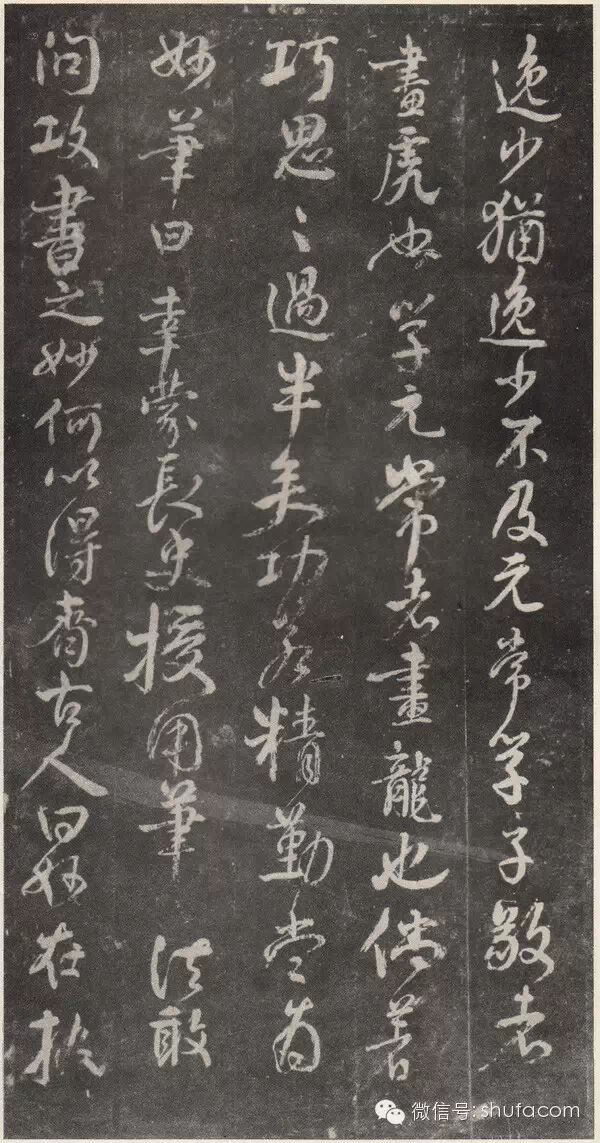 逸少猶逸少不及元常學子敬者
畫虎也學元常者畫龍也倘著
巧思〻過半矣功若精勤當為
妙筆曰 幸蒙長史授用筆 法敢
問攻書之妙何以得齊古人曰妙在執
微信号:shufacom